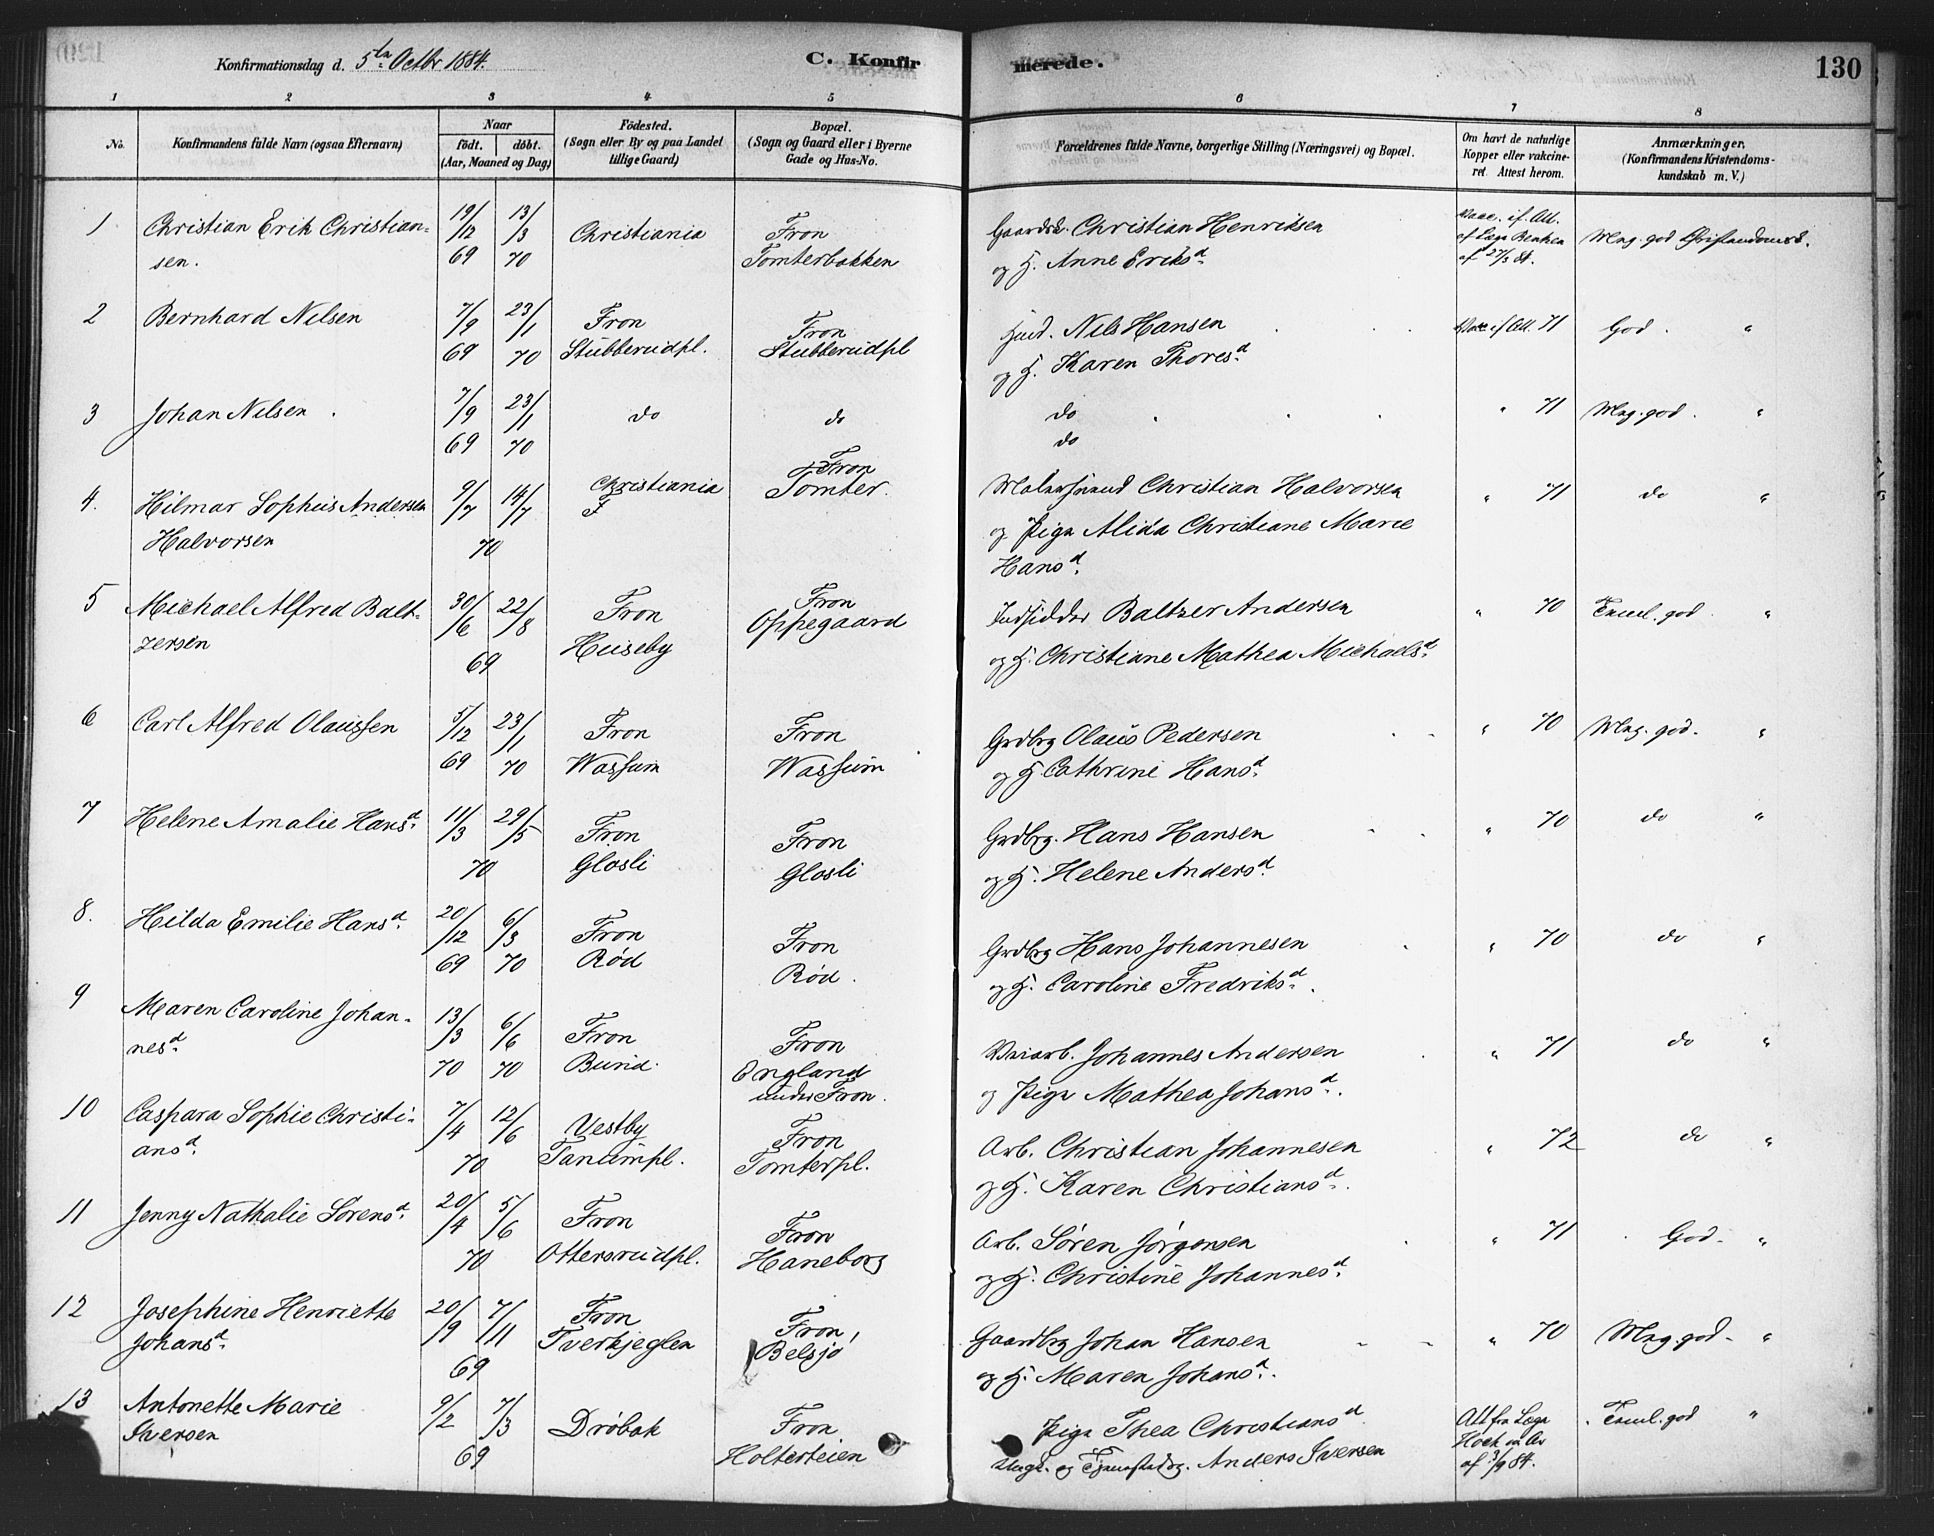 Konfirmationsdag d. 5te Octbr 1884. C. Konfirmerede. 130
1 2 3 4 5 6 7 8
No. Konfirmandens fulde Navn (ogsaa Efternavn) Naar födt. döbt. (Aar, Maaned og Dag) Födested. (Sogn eller By og paa Landet tillige Gaard) Bopæl. (Sogn og Gaard eller i Byerne Gade og Hus-No. Forældrenes fulde Navne, borgerlige Stilling (Næringsvei) og Bopæl. Om havt de naturlige Kopper eller vakcineret Attest herom. Anmærkninger. (Konfirmandens Kristendomskundskab m. V.)
1 Christian Erik Christian- 19/12 13/3 Christiania Fron Christian Henriksen Vacc. if. Att. Mag. god Christendomsk.
sen. 69 70 Tomterbakken og H. Anne Eriksd. af Læge Bentzen
af 27/3 84.
2 Bernhard Nilsen 7/9 23/1 Fron Fron Husd. Nils Hansen Vacc if Att. 71 God. "
69 70 Stubberudpl. Stubberudpl og H. Karen Thoresd.
3 Johan Nilsen 7/9 23/1 do do do " 71 Mag. god. "
69 70 do
4. Hilmar Sophus Andersen 9/7 14/7 Christiania Fron Tomter. Malersvend Christian Halvorsen " 71 do "
Halvorsen 70 F og Pige Alida Christiane Marie
Hansd.
5 Michael Alfred Balt- 30/6 22/8 Fron Fron Indsidder Baltzer Andersen " 70 Teml. god "
zersen 69 Huseby Oppegaard og H. Christiane Mathea Michaelsd.
6 Carl Alfred Olaussen 5/12 23/1 Fron Fron Grdbrg Olaus Pedersen " 70 Mag. god. "
69 70 Wassum Wassum og H. Cathrine Hansd.
7 Helene Amalie Hansd. 11/3 29/5 Fron Fron Grdbrg. Hans Hansen " 70 do "
70 Glosli Glosli og H. Helene Andersd.
8. Hilda Emilie Hansd. 20/12 6/3 Fron Fron Grdbrg Hans Johannesen " 70 do "
69 70 Rød Rød. og H. Caroline Fredriksd.
9 Maren Caroline Johan- 13/3 6/6 Fron Fron Veiarb. Johannes Andersen " 71 do "
nesd. 70 70 Bund. England under Fron. og Pige Mathea Johansd.
10 Caspara Sophie Christi- 7/4 12/6 Vestby Fron Arb. Christian Johannesen " 72 do "
ansd. 70 Tanumpl. Tomterpl. og H. Karen Christiansd.
11 Jenny Nathalie Sørensd. 20/4 5/6 Fron Fron Arb. Søren Jørgensen " 71 God. "
70 Ottersrudpl. Haneborg og H. Christine Johannesd.
12 Josephine Henriette 20/9 7/11 Fron Fron, Gaardbrg Johan Hansen " 70 Mag. god. "
Johansd. 69 Tverkjeglen Belsjø og H. Maren Johansd.
13 Antonette Marie 9/2 7/3 Drøbak Fron Pige Thea Christiansd. Att fra Læge Teml. god "
Iversen 69 Holterteien Ungk. og Anders Iversen Hock
af 3/9 84.